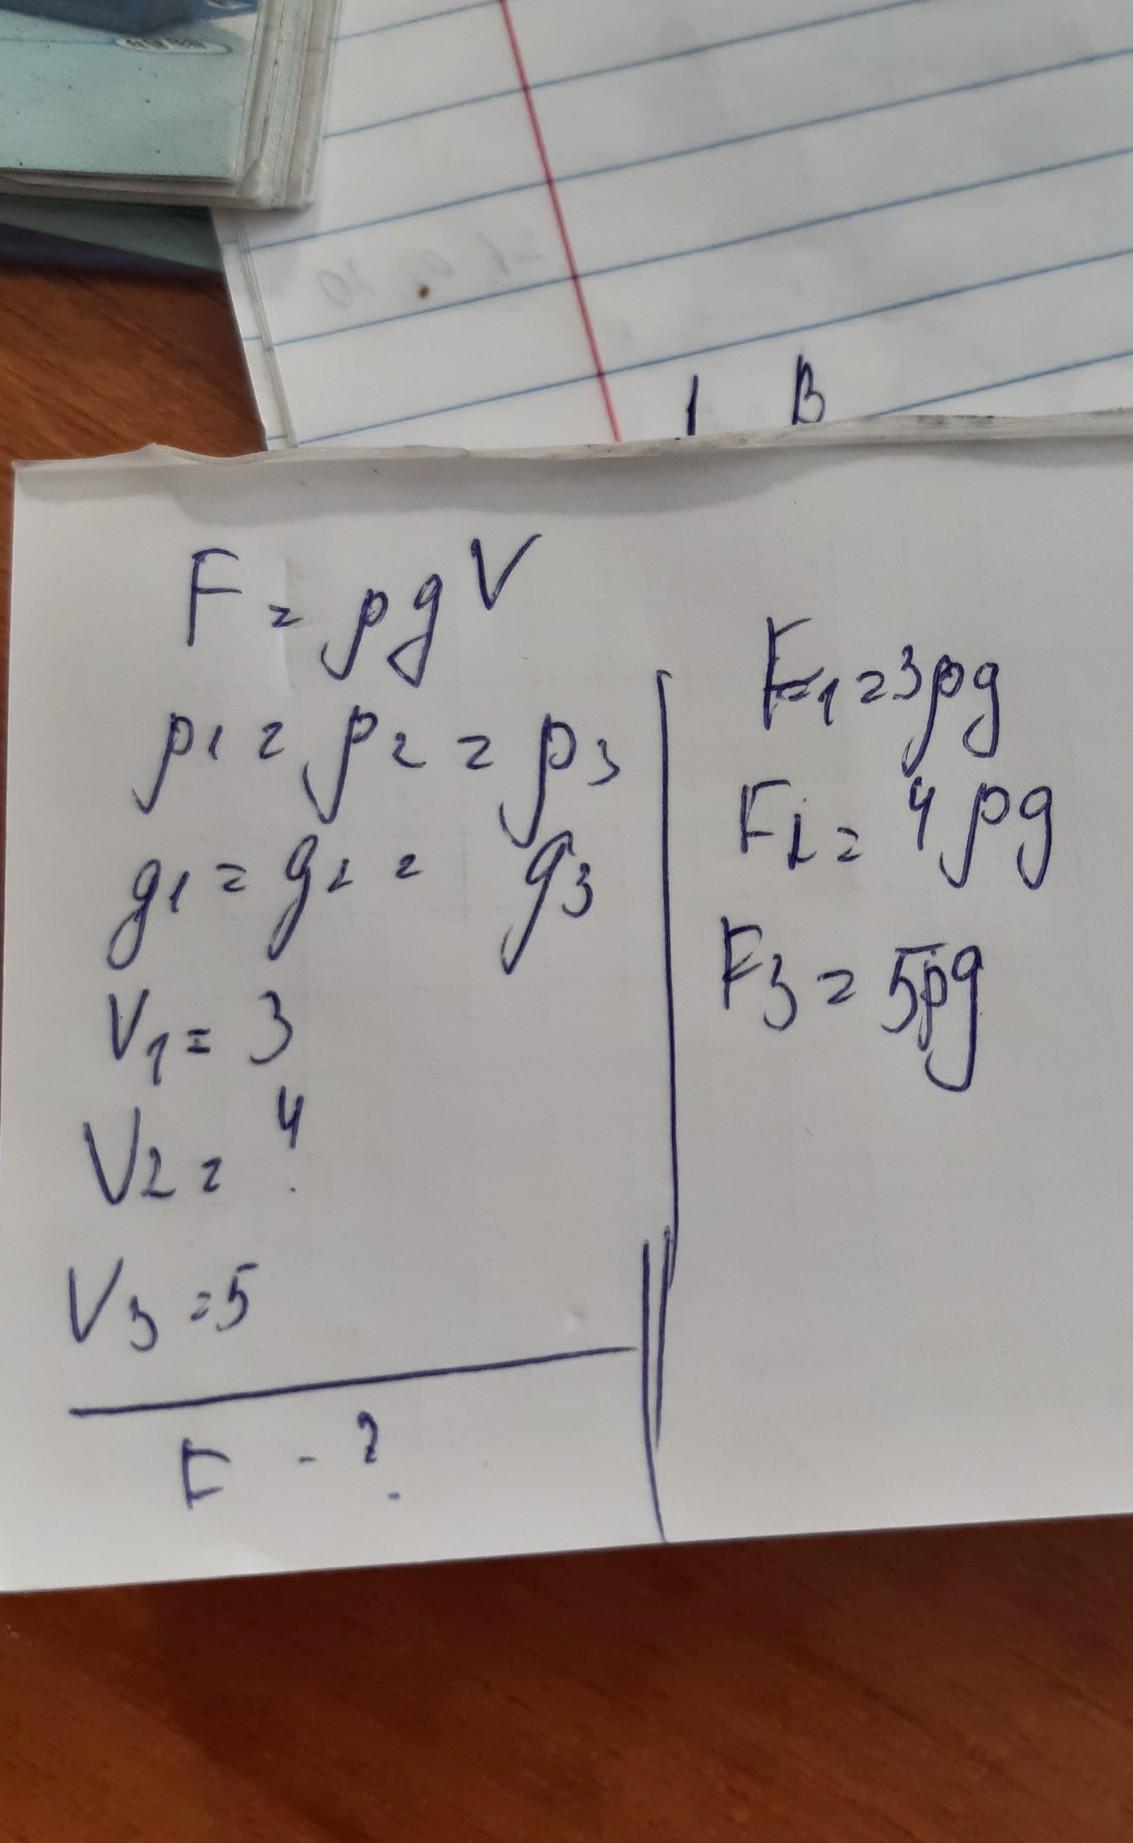 1 B
F = ρgV
ρ1 = ρ2 = ρ3
g1 = g2 = g3
V1 = 3
V2 = 4
V3 = 5
F - ?
F1 = 3ρg
F2 = 4ρg
F3 = 5ρg